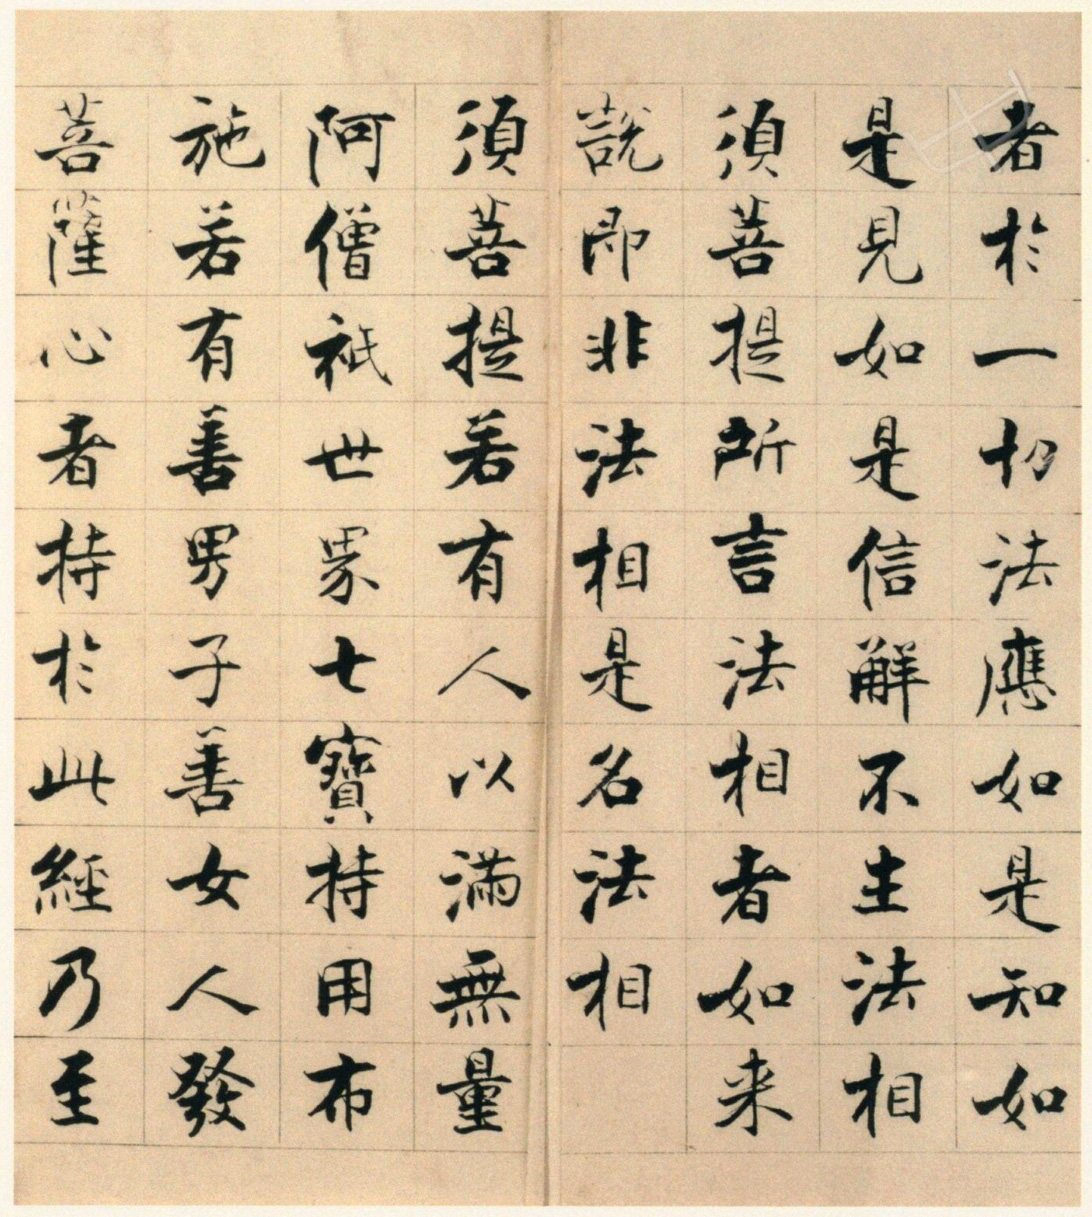 者於一切法應如是知如
是見如是信解不生法相
須菩提所言法相者如来
說即非法相是名法相
須菩提若有人以滿無量
阿僧祇世界七寶持用布
施若有善男子善女人發
菩薩心者持於此經乃至